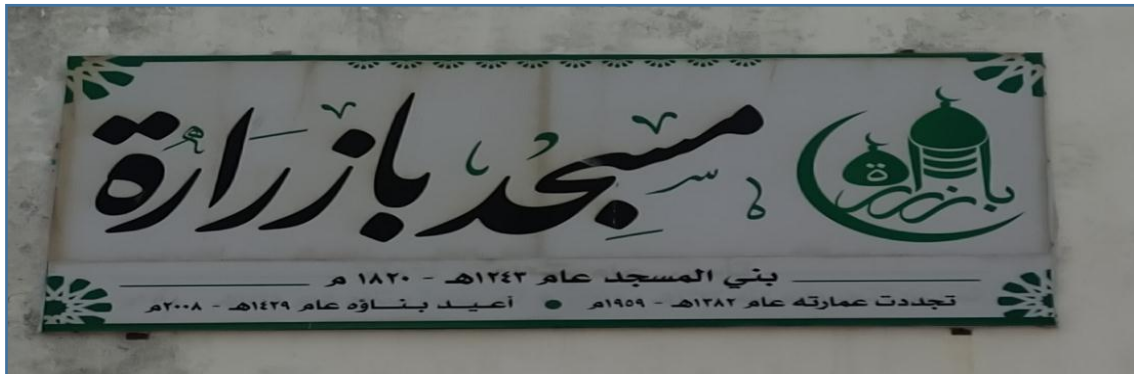 مسجد بازرارة
بازرارة
بني المسجد عام ١٢٤٣هـ - ١٨٢٠ م
تجددت عمارته عام ١٣٨٢هـ - ١٩٥٩م • أعيد بناؤه عام ١٤٢٩هـ - ٢٠٠٨م